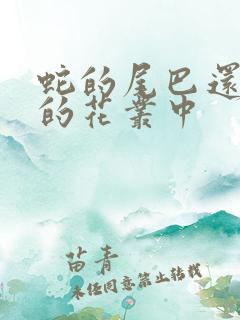 蛇的尾巴還
的花叢中
苗青
未經同意禁止轉載